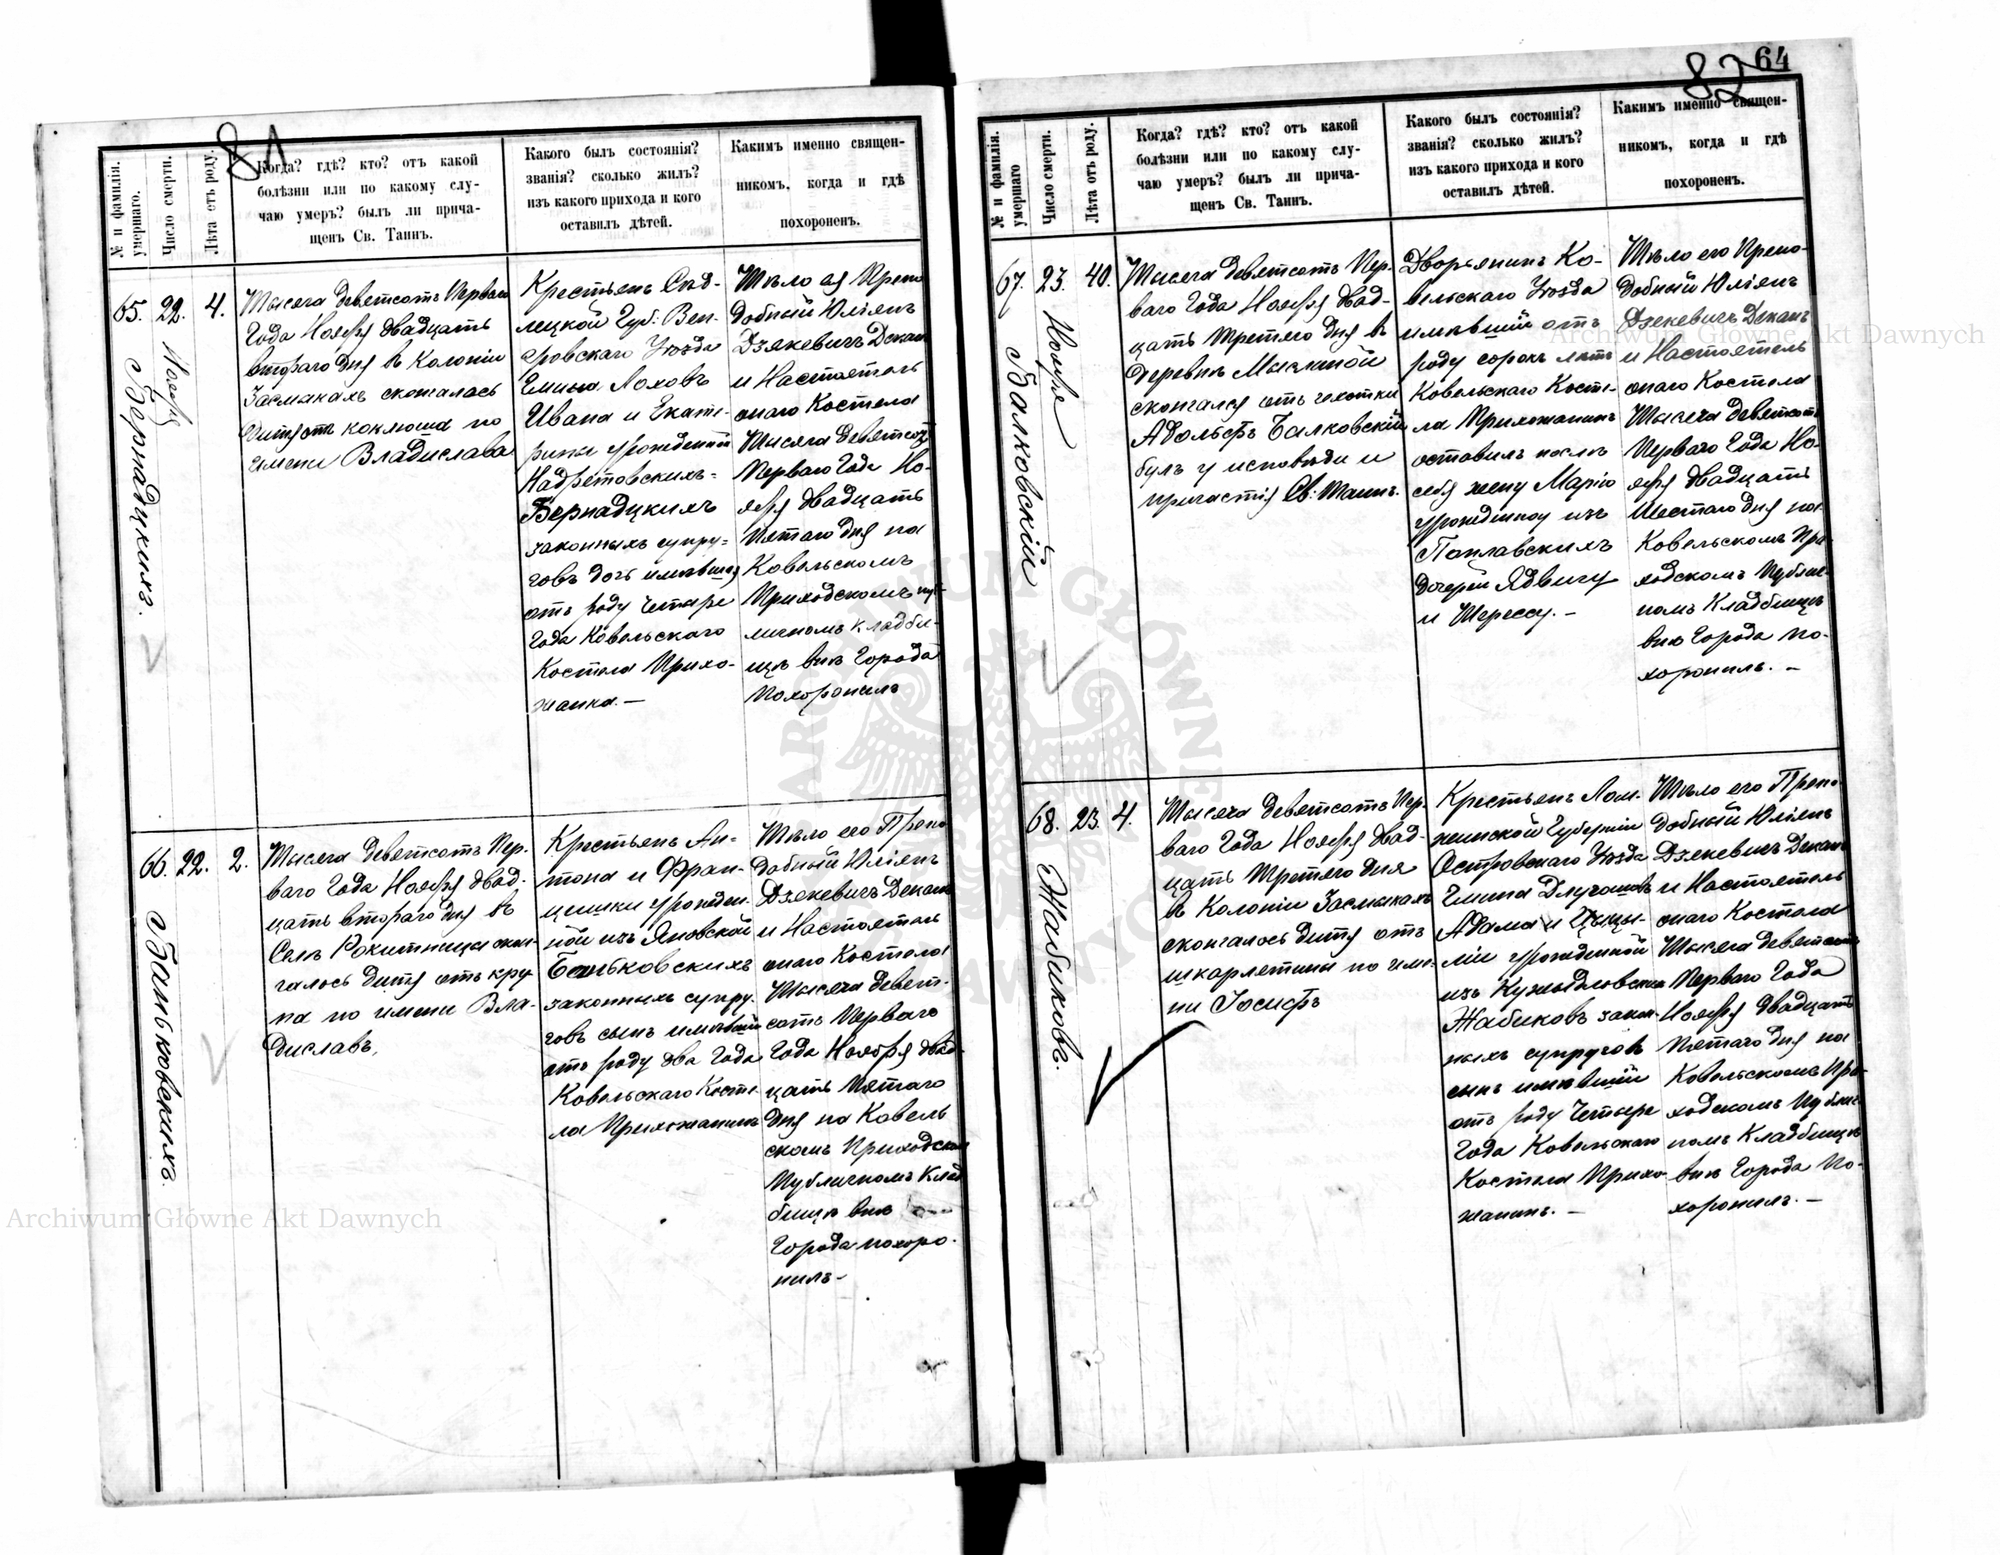 81
№ и фамилія.
умершаго.
Число смерти.
Лѣта отъ роду.
Когда? гдѣ? кто? отъ какой
болѣзни или по какому слу-
чаю умеръ? былъ ли прича-
щенъ Св. Таинъ.
Какого былъ состоянія?
званія? сколько жилъ?
изъ какого прихода и кого
оставилъ дѣтей.
Каким именно священ-
никомъ, когда и гдѣ
похороненъ.
65.
Бернадцкихъ.
22.
Ноября
4.
Тысяча девятсотъ Перваго
Года Ноября двадцать
втораго дня в Колоніи
Засмыкахъ скончалась
Дитя отъ коклюша по
имени Владислава
Крестьянъ Сѣд-
лецкой Губ: Вен-
гровскаго Уѣзда
Гмины Лоховъ
Ивана и Екате-
рины урожденной
Надретовскихъ=
Бернадцкихъ
законныхъ супру=
говъ дочь имѣвшая
отъ роду четыре
Года Ковельскаго
Костела Прихо-
жанка.-
Тѣло ея Препо
добный Юліянъ
Дзякевичъ Деканъ
и Настоятель
онаго Костела
Тысяча девятсотъ
Перваго Года Но-
ября двадцать
Пятаго дня на
Ковельскомъ
Приходскомъ пуб-
личномъ кладби-
щѣ внѣ Города
Похоронилъ
66.
Баньковскихъ.
22.
2.
Тысяча девятсотъ Пер-
ваго Года Ноября двад-
цать втораго дня в
Селѣ Рокитница скон-
чалось Дитя отъ кру
па по имени Вла-
диславъ.
Крестьянъ Ан-
тона и Фран-
цишки урожден-
ной изъ Яновской
Баньковскихъ
законныхъ супру-
говъ сынъ имѣвшій
отъ роду два Года
Ковельскаго Косте-
ла Прихожанинъ
Тѣло его Препо
добный Юліянъ
Дзякевичъ Деканъ
и Настоятель
онаго Костела
Тысяча девят-
сотъ Перваго
Года Ноября двад-
цать Пятаго
дня на Ковель
скомъ Приходском
Публичномъ Клад
бищѣ внѣ
Города похоро-
нилъ-
82 64
№ и фамилія.
умершаго
Число смерти.
Лѣта отъ роду.
Когда? гдѣ? кто? отъ какой
болѣзни или по какому слу-
чаю умеръ? былъ ли прича-
щенъ Св. Таинъ.
Какого былъ состоянія?
званія? сколько жилъ?
изъ какого прихода и кого
оставилъ дѣтей.
Какимъ именно священ-
никомъ, когда и гдѣ
похороненъ.
67.
Балковскій
23.
Ноября
40.
Тысяча девятсотъ Пер-
ваго Года Ноября двад-
цать Третяго дня в
деревнѣ Мысліной
скончался отъ чахотки
Адольфъ Балковскій
былъ у исповѣди и
причастія Св: Таинъ.
Дворянинъ Ко-
вельскаго Уѣзда
имѣвшій отъ
роду сорокъ лѣтъ
Ковельскаго Косте-
ла Прихожанинъ
оставилъ послѣ
себя жену Марію
урожденную изъ
Поплавскихъ
дочерей Ядвигу
и Терессу.-
Тѣло его Препо-
добный Юліянъ
Дзякевичъ Деканъ
и Настоятель
онаго Костела
Тысяча девятсотъ
Перваго Года Но-
ября двадцать
Шестаго дня на
Ковельскомъ При-
ходскомъ Публич-
номъ Кладбищѣ
внѣ Города по-
хоронилъ.-
68.
Жабиковъ.
23.
4.
Тысяча девятсотъ Пер-
ваго Года Ноября двад-
цать Третяго дня
в Колоніи Засмыкахъ
скончалось дитя отъ
шкарлетины по име-
ни Іосифъ
Крестьянъ Лом-
жинской Губерніи
Островскаго Уѣзда
Гмина
Адама и
ліи урожденной
изъ
Жабиковъ закон-
ныхъ супруговъ
сынъ имѣвшій
отъ роду Четыре
Года Ковельскаго
Костела Прихо-
жанинъ.-
Тѣло его Препо-
добный Юліянъ
Дзякевичъ Деканъ
и Настоятель
онаго Костела
Тысяча девятсотъ
Перваго Года
Ноября двадцать
Пятаго дня на
Ковельскомъ При-
ходскомъ Публич-
номъ Кладбищѣ
внѣ Города По-
хоронилъ.-
Archiwum Główne Akt Dawnych
Archiwum Główne Akt Dawnych
ARCHIWUM GŁÓWNE AKT DAWNYCH